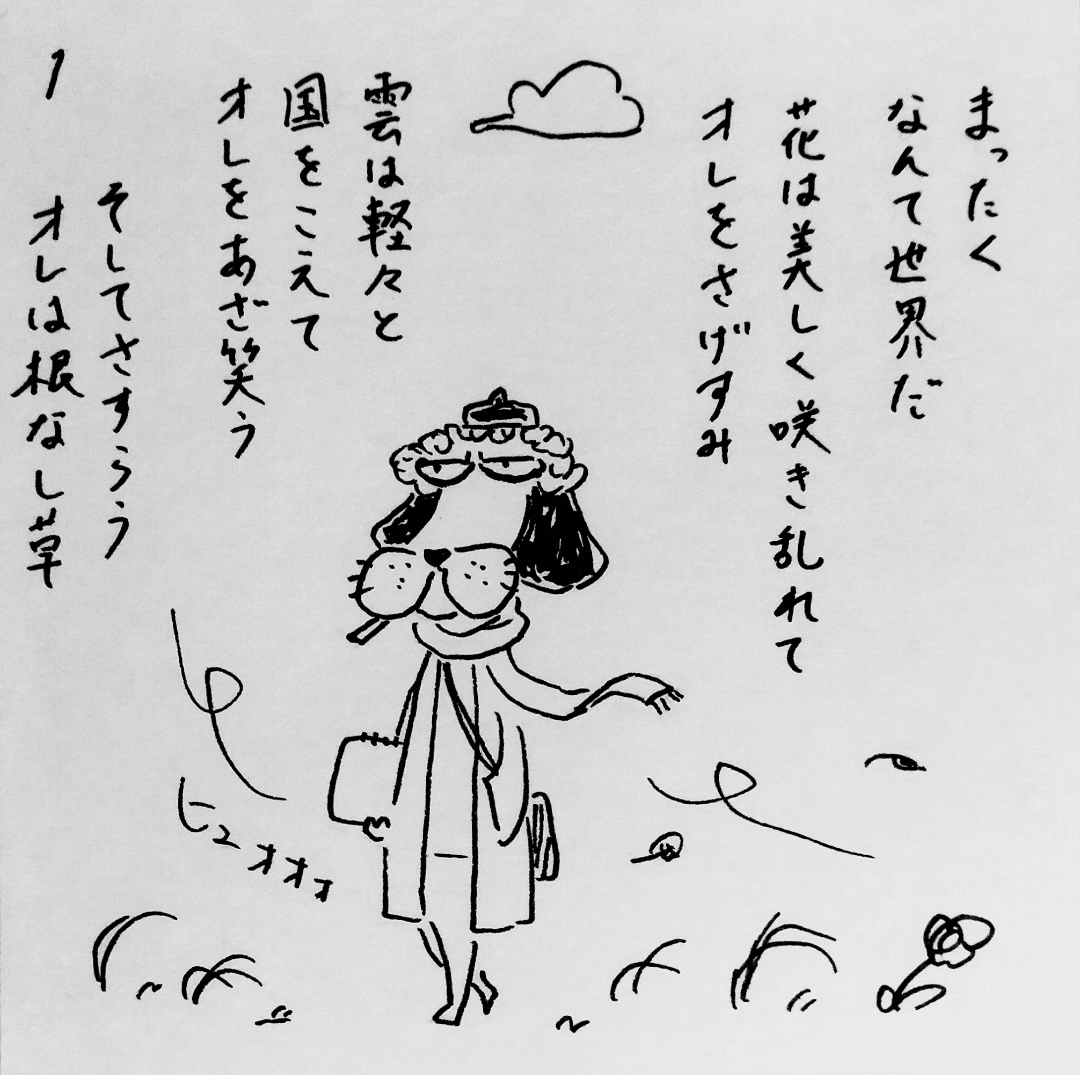 まったく
なんて世界だ
花は美しく咲き乱れて
オレをさげすみ
雲は軽々と
国をこえて
オレをあざ笑う
そしてさすらう
オレは根なし草
1
ヒュオオォ